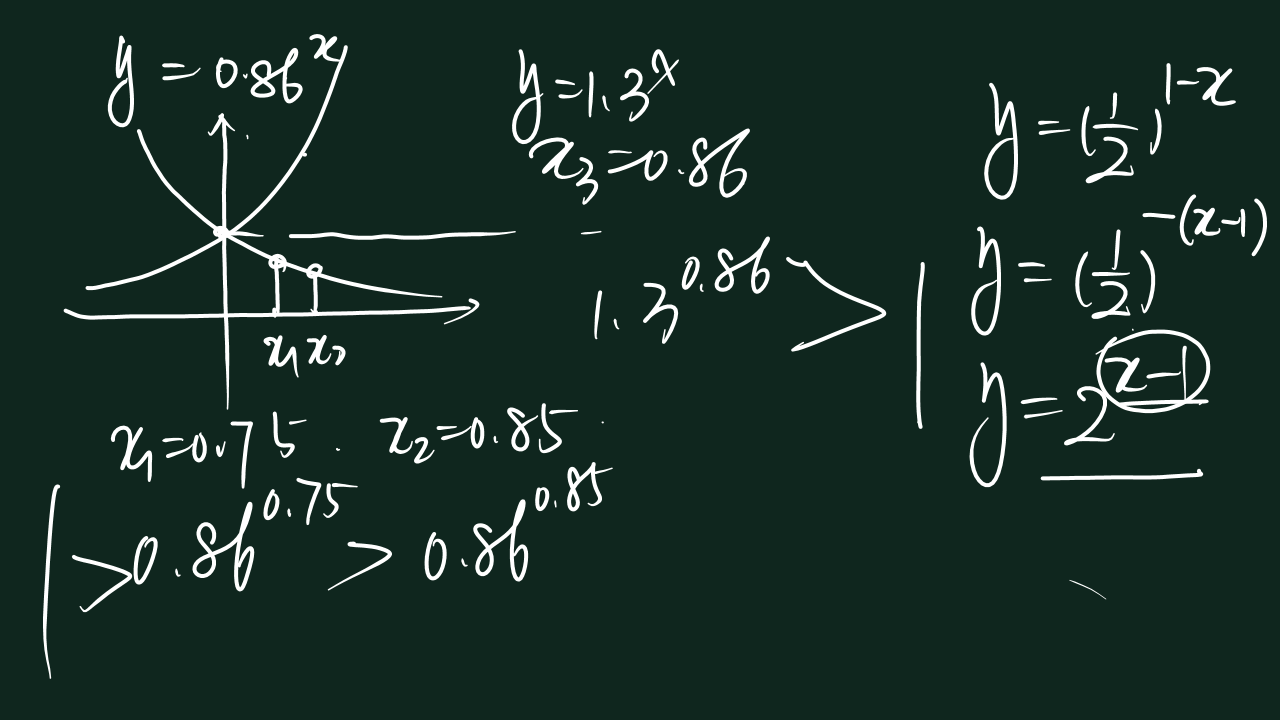 y = 0.86^x
x₁ x₂
x₁ = 0.75 x₂ = 0.85
1 > 0.86^0.75 > 0.86^0.85
y = 1.3^x
x₃ = 0.86
1.3^0.86 > 1
y = (1/2)^1-x
y = (1/2)^-(x-1)
y = 2^x-1